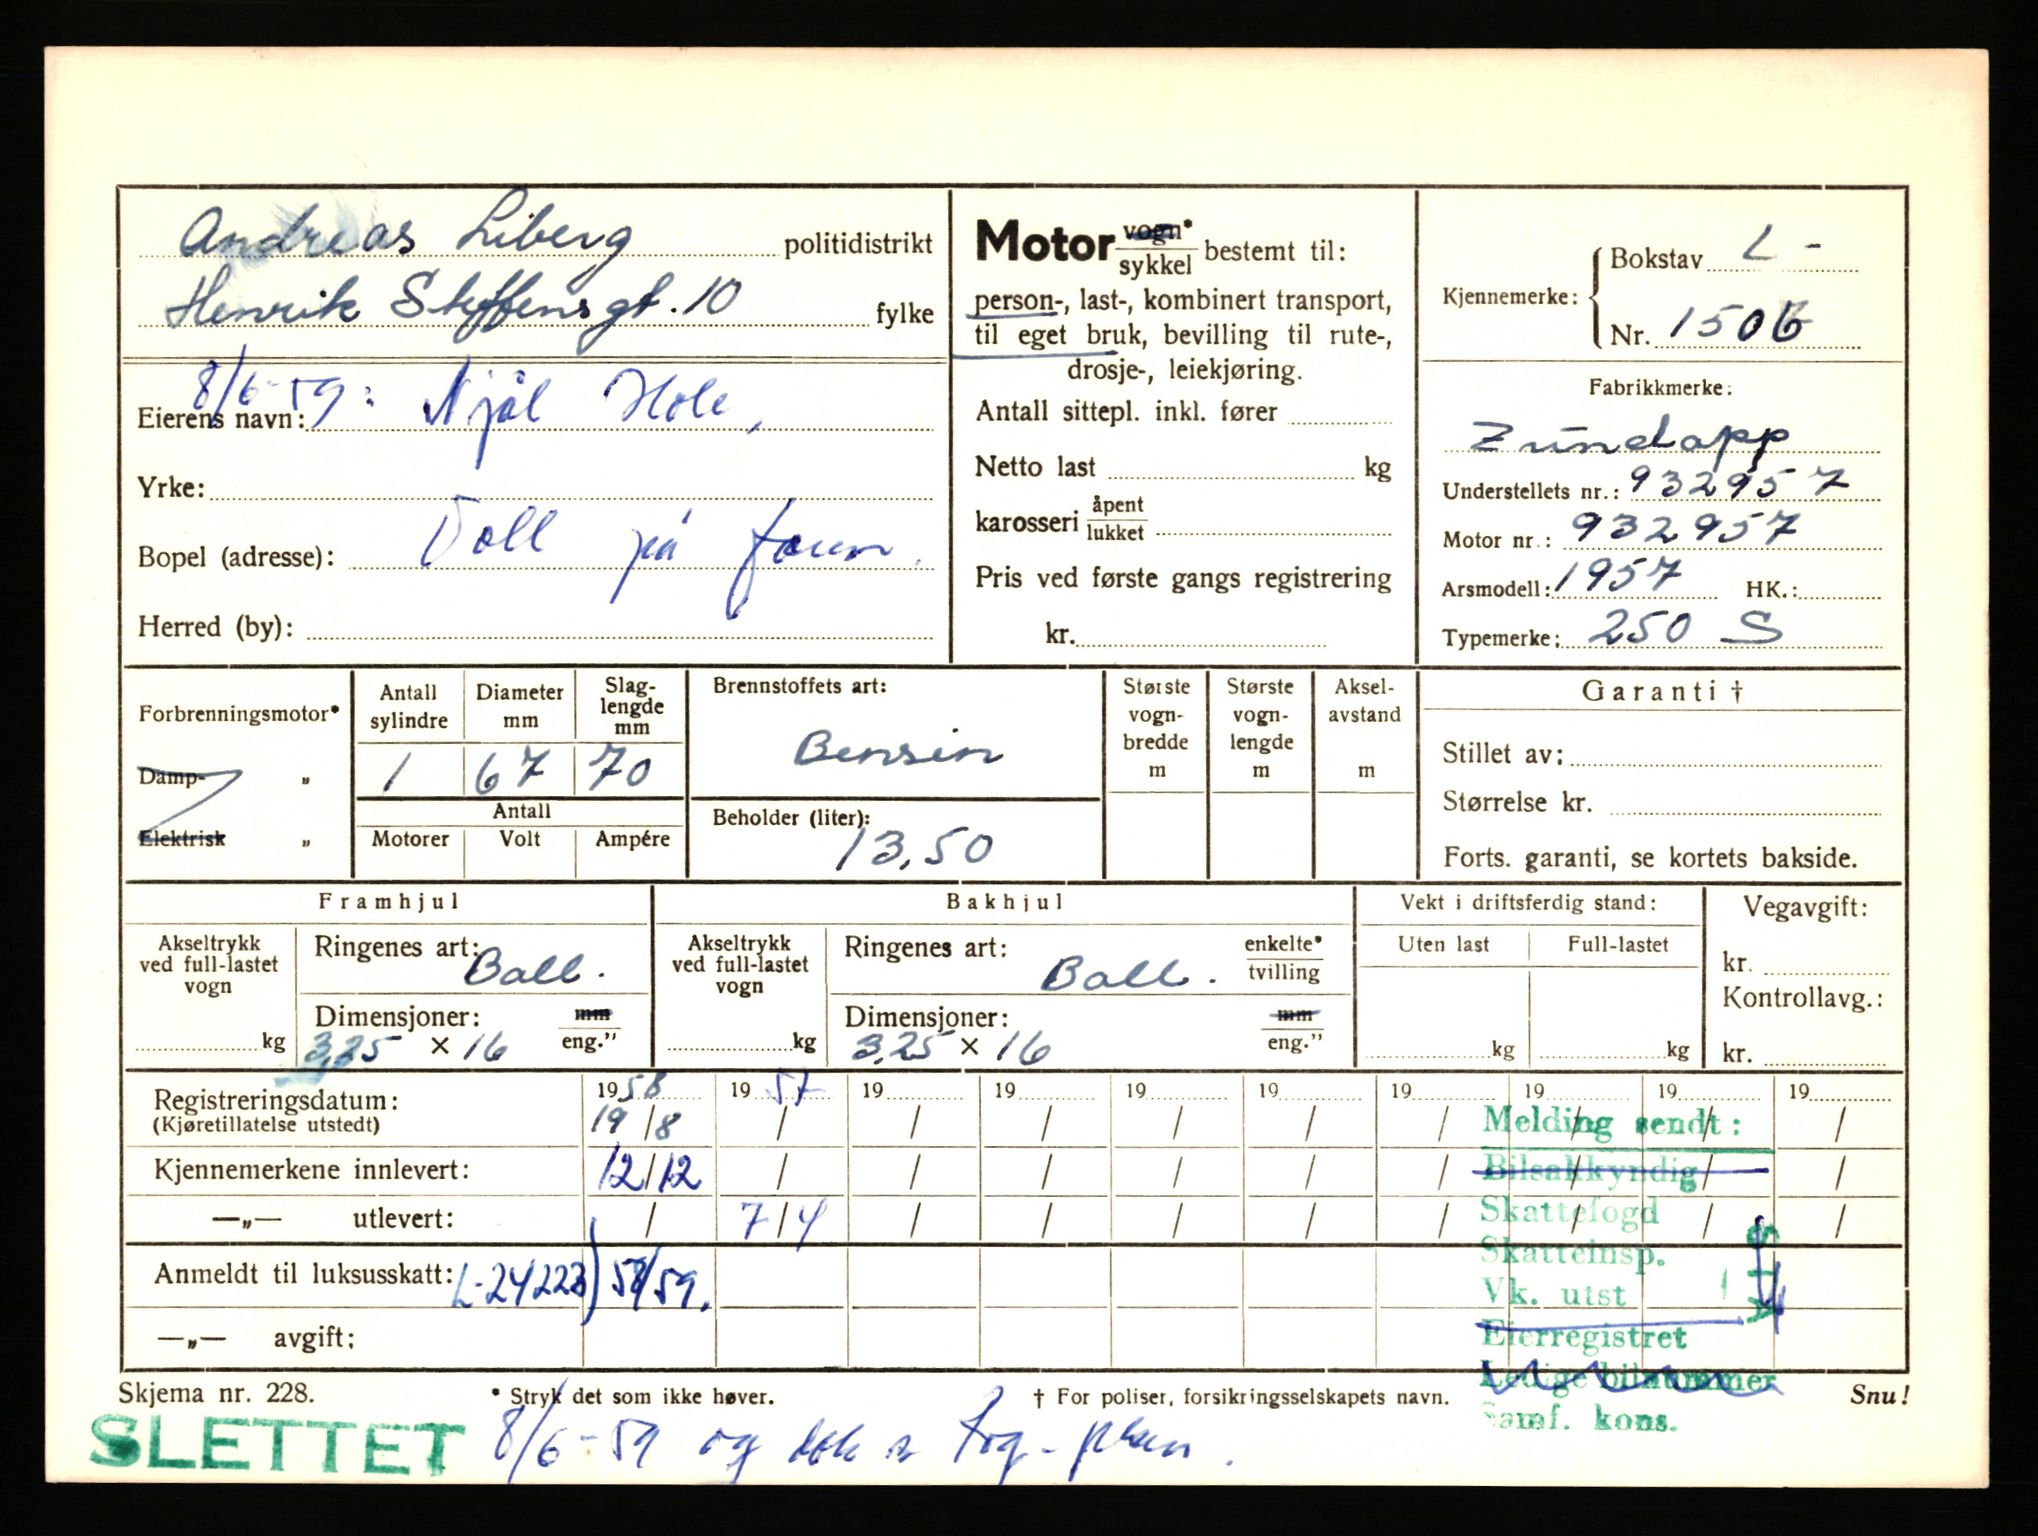 Andreas Liberg politidistrikt
Henrik Steffens gt. 10 fylke
8/6-59: Njål Hole,
Eierens navn:
Yrke:
Bopel (adresse): Voll på
Herred (by):
Motor vogn* sykkel bestemt til:
person-, last-, kombinert transport,
til eget bruk, bevilling til rute-,
drosje-, leiekjøring.
Antall sittepl. inkl. fører
Netto last kg
karosseri åpent lukket
Pris ved første gangs registrering
kr.
Kjennemerke: Bokstav L -
Nr. 1506
Fabrikkmerke:
Zündapp
Understellets nr.: 932957
Motor nr.: 932957
Arsmodell: 1957 HK.:
Typemerke: 250 S
Forbrenningsmotor*
Damp- "
Elektrisk "
Antall sylindre
Diameter mm
Slag-lengde mm
1 67 70
Antall
Motorer Volt Ampére
Brennstoffets art:
Bensin
Beholder (liter):
13,50
Største vogn-bredde m
Største vogn-lengde m
Aksel-avstand m
Garanti †
Stillet av:
Størrelse kr.
Forts. garanti, se kortets bakside.
Framhjul
Akseltrykk ved full-lastet vogn
kg
Ringenes art: Ball.
Dimensjoner: mm eng."
3,25 × 16
Bakhjul
Akseltrykk ved full-lastet vogn
kg
Ringenes art: Ball. enkelte* tvilling
Dimensjoner: mm eng."
3,25 × 16
Vekt i driftsferdig stand:
Uten last Full-lastet
kg kg
Vegavgift:
kr.
Kontrollavg.:
kr.
1958 1957 19 19 19 19 19 19 19 19
Registreringsdatum: 19/8 / / / / / / / / /
(Kjøretillatelse utstedt)
Kjennemerkene innlevert: 12/12 / / / / / / / /
—„— utlevert: / 7/4 / / / / / / / /
Anmeldt til luksusskatt: L-24223) 58/59.
—„— avgift:
Melding sendt:
Bilsakkyndig
Skattefogd
Skatteinsp.
Vk. utst
Eierregistret
Ledige bilnummer
Samf. kons.
Skjema nr. 228.
* Stryk det som ikke høver.
† For poliser, forsikringsselskapets navn.
Snu!
SLETTET 8/6-59 og